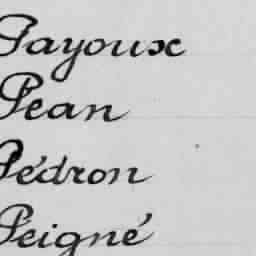 Payoux
Péan
Pédron
Peigné